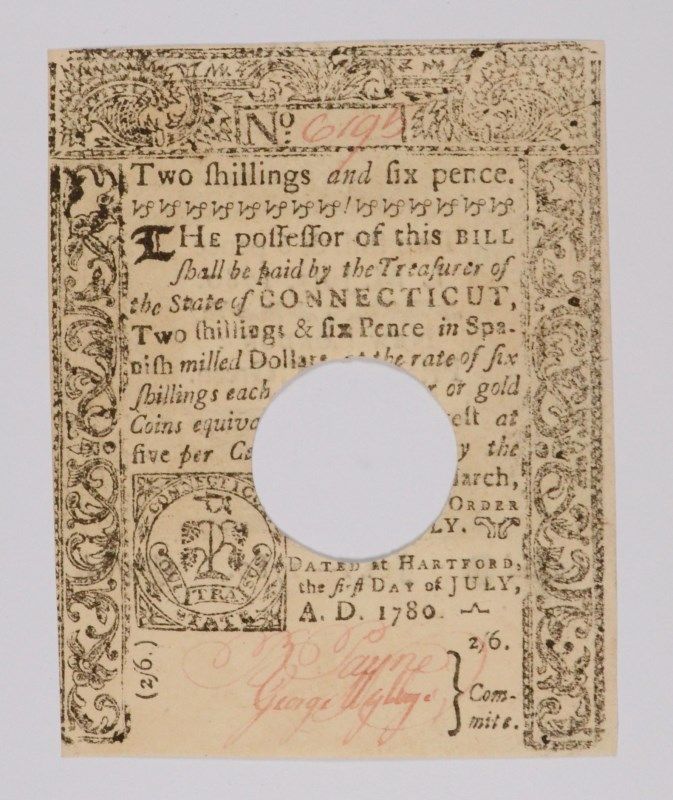 No. 6195
Two ſhillings and ſix pence.
THE poſſeſſor of this BILL
ſhall be paid by the Treaſurer of
the State of CONNECTICUT,
Two ſhillings & ſix Pence in Spa-
niſh milled Dollars, at the rate of ſix
ſhillings each or gold
Coins equiva eſt at
five per Ce y the
arch,
ORDER
LY.
CONNECTIC
QUI TRA SUS
STATE
DATED at HARTFORD,
the firſt DAY of JULY,
A. D. 1780.
(2/6.)
2/6.
B. Payne
George
Com-
mite.